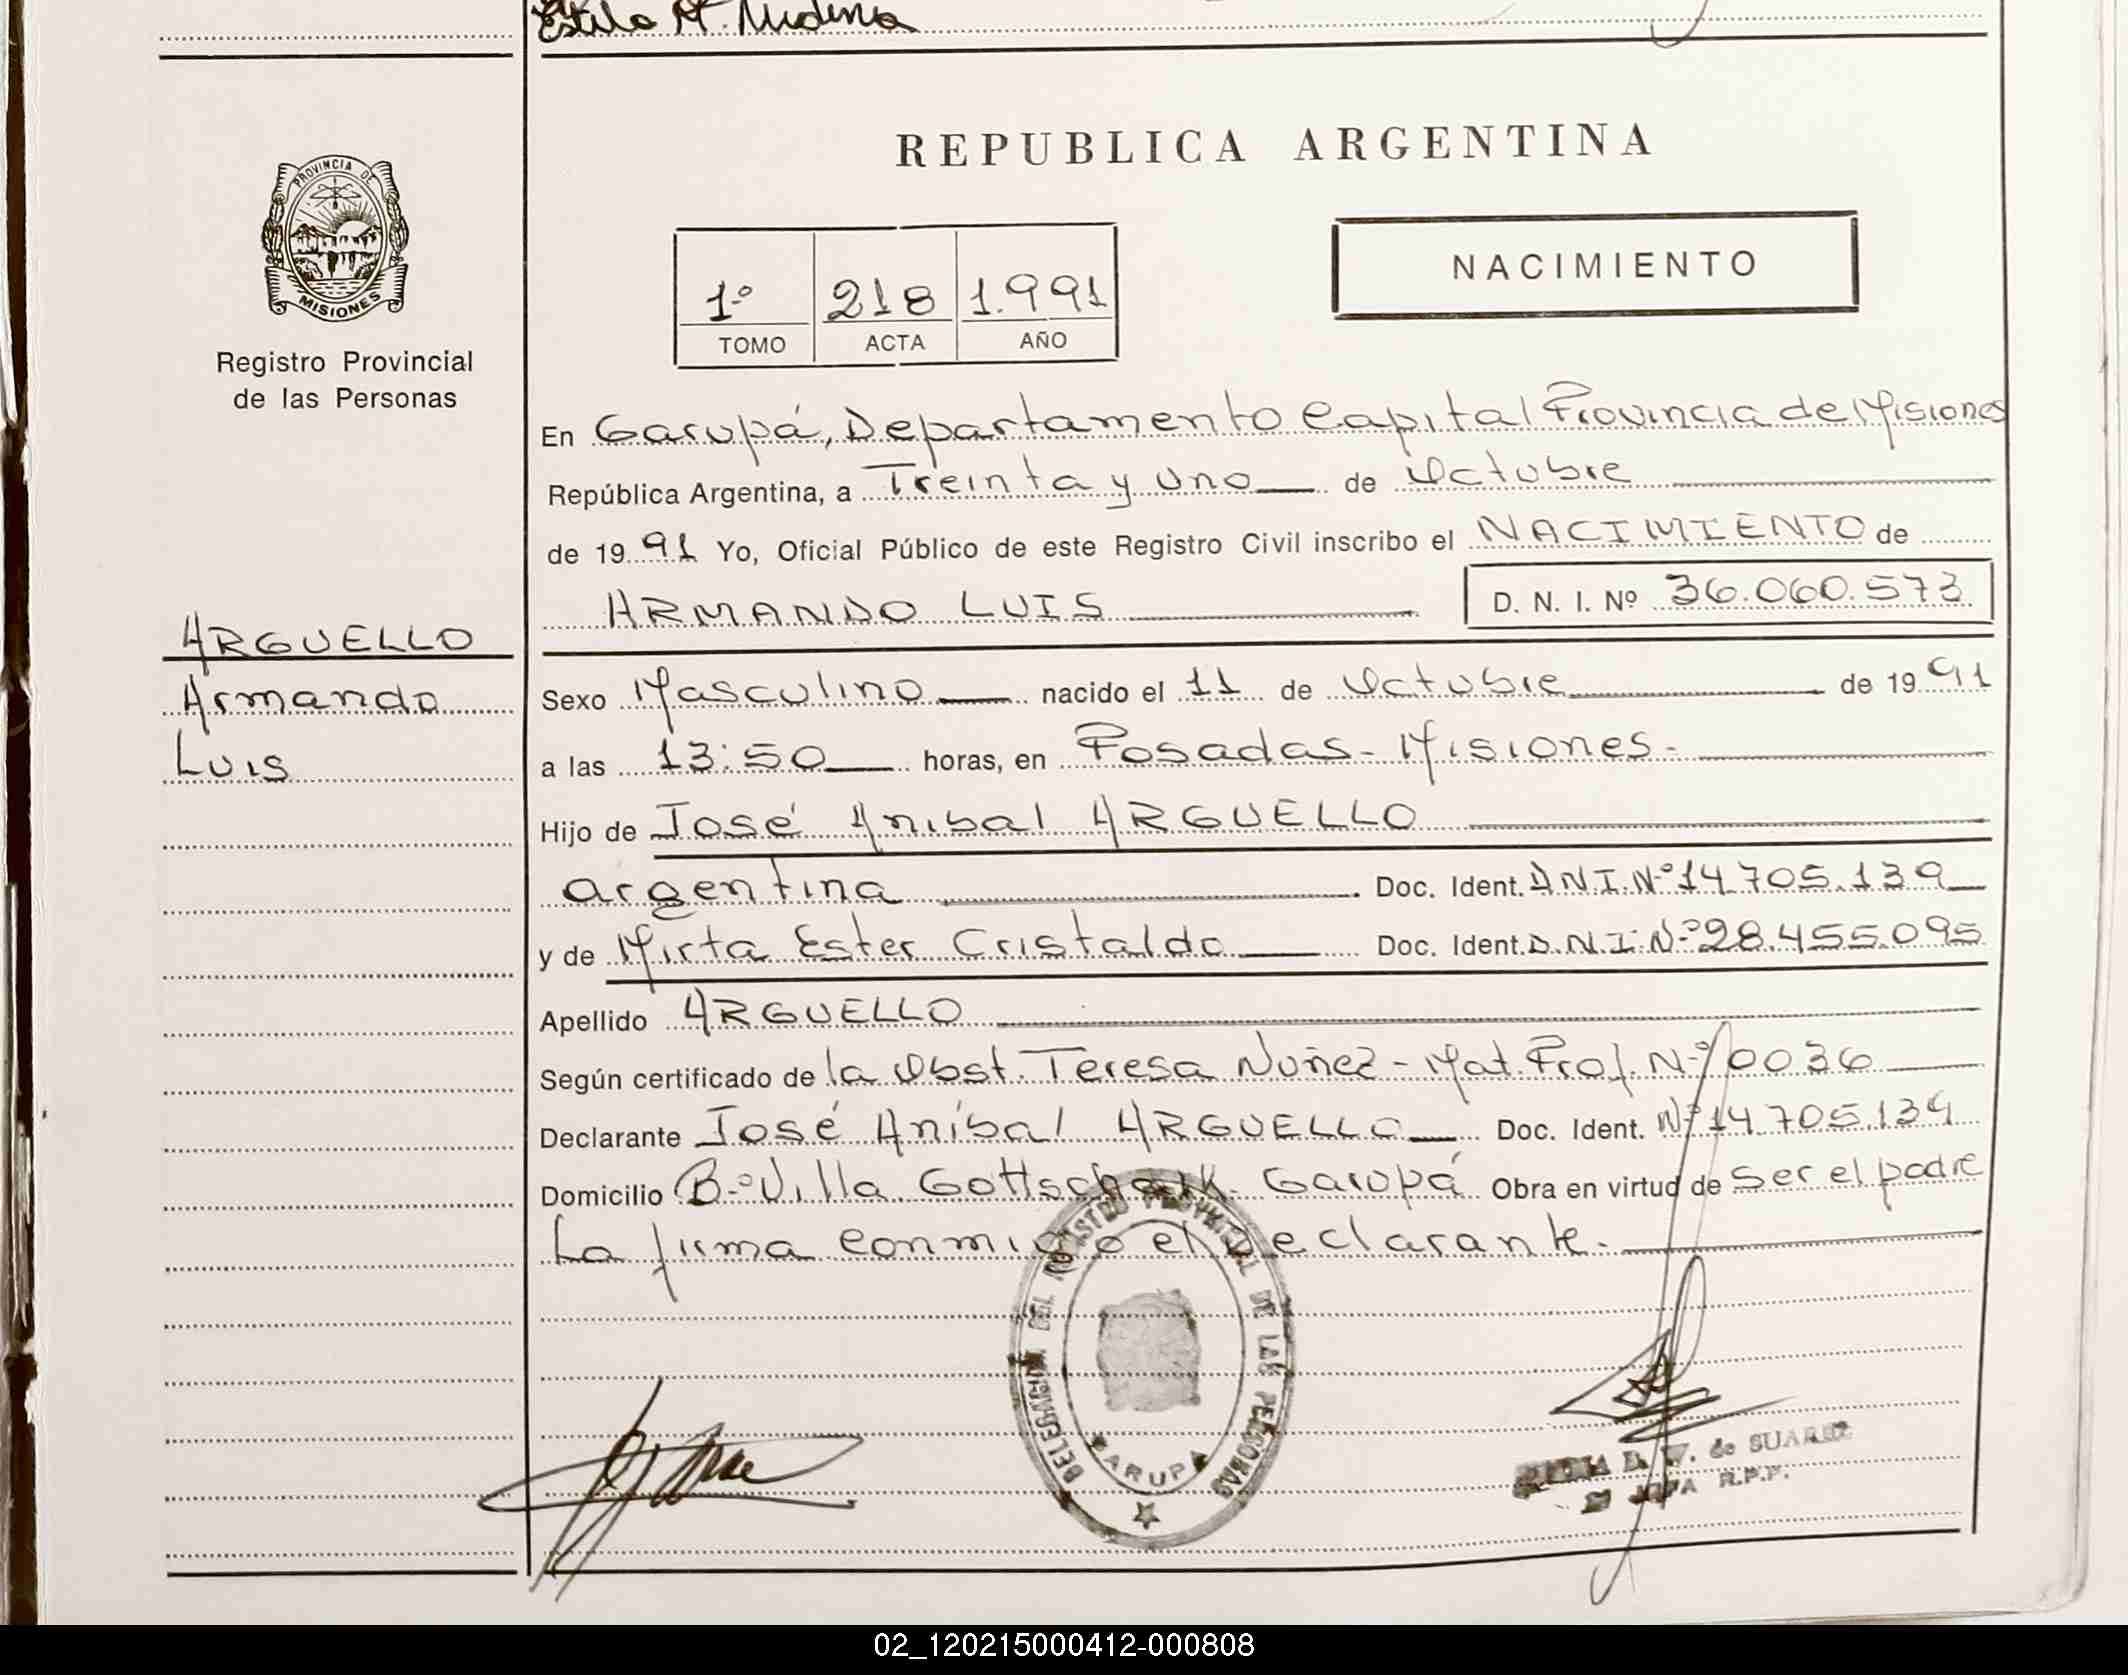 Estela M. Medina
PROVINCIA DE
MISIONES
Registro Provincial
de las Personas
REPUBLICA ARGENTINA
1º 218 1.991
TOMO ACTA AÑO
NACIMIENTO
En Garupá, Departamento Capital Provincia de Misiones
República Argentina, a Treinta y uno de Octubre
de 1991 Yo, Oficial Público de este Registro Civil inscribo el NACIMIENTO de
ARMANDO LUIS D. N. I. Nº 36.060.573
ARGUELLO
Armando
Luis
Sexo Masculino nacido el 11 de Octubre de 1991
a las 13:50 horas, en Posadas - Misiones.-
Hijo de José Anibal ARGUELLO
argentina Doc. Ident. D.N.I. Nº 14.705.139
y de Mirta Ester Cristaldo Doc. Ident. D.N.I. Nº 28.455.095
Apellido ARGUELLO
Según certificado de la Obst. Teresa Nuñez - Mat. Prof. Nº 0036
Declarante José Aníbal ARGUELLO Doc. Ident. Nº 14.705.139
Domicilio Bº Villa Gottschalk - Garupá Obra en virtud de ser el padre
La firma conmigo el Declarante.-
DELEGACION DEL REGISTRO PROVINCIAL DE LAS PERSONAS
GARUPA
de SUAREZ
JEFA R.P.P.
02_120215000412-000808